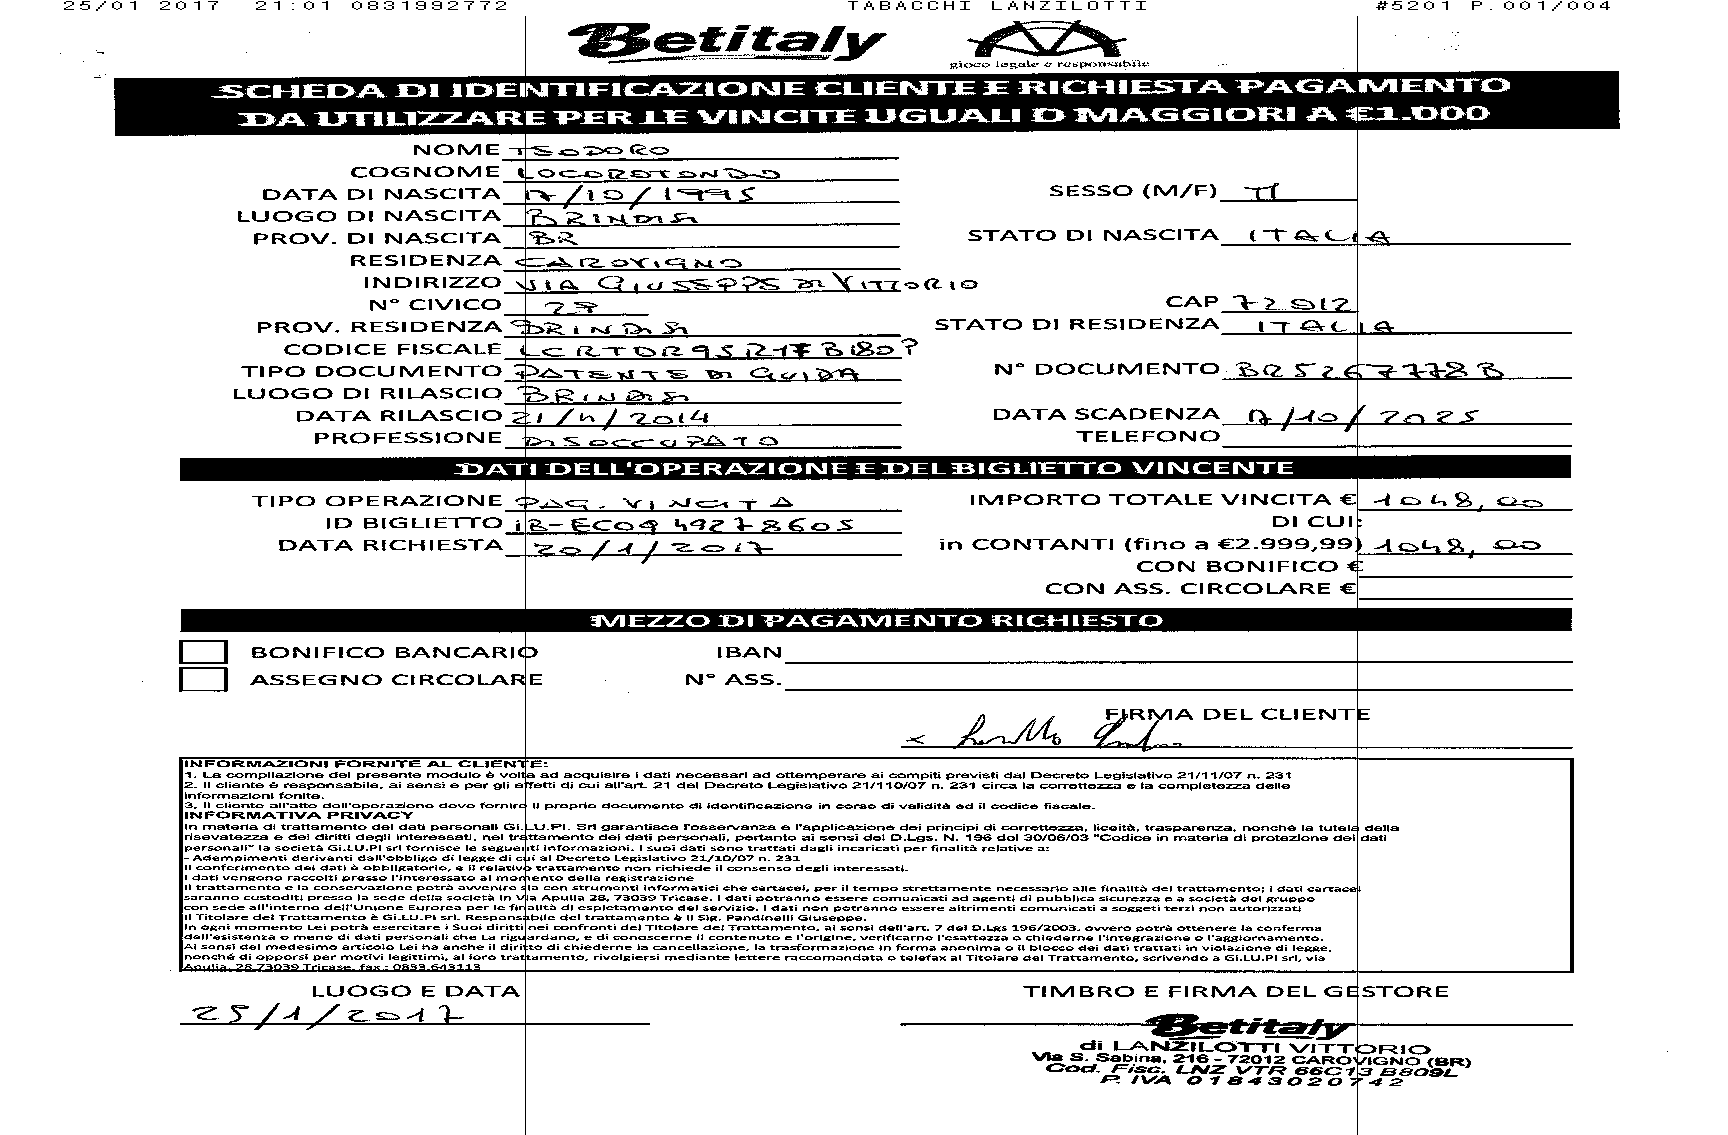 25/01 2017 21:01 0831992772 TABACCHI LANZILOTTI #5201 P.001/004
Betitaly
gioco legale e responsabile
SCHEDA DI IDENTIFICAZIONE CLIENTE E RICHIESTA PAGAMENTO
DA UTILIZZARE PER LE VINCITE UGUALI O MAGGIORI A €1.000
NOME TEODORO
COGNOME LOCOROTONDO
DATA DI NASCITA 17/10/1995 SESSO (M/F) M
LUOGO DI NASCITA BRINDISI
PROV. DI NASCITA BR STATO DI NASCITA ITALIA
RESIDENZA CAROVIGNO
INDIRIZZO VIA GIUSEPPE DI VITTORIO
N° CIVICO CAP 72012
PROV. RESIDENZA BRINDISI STATO DI RESIDENZA ITALIA
CODICE FISCALE
TIPO DOCUMENTO PATENTE DI GUIDA N° DOCUMENTO
LUOGO DI RILASCIO BRINDISI
DATA RILASCIO DATA SCADENZA 17/10/2025
PROFESSIONE DISOCCUPATO TELEFONO
DATI DELL'OPERAZIONE E DEL BIGLIETTO VINCENTE
TIPO OPERAZIONE PAG. VINCITA IMPORTO TOTALE VINCITA € 1048,00
ID BIGLIETTO DI CUI:
DATA RICHIESTA 20/1/2017 in CONTANTI (fino a €2.999,99) 1048,00
CON BONIFICO €
CON ASS. CIRCOLARE €
MEZZO DI PAGAMENTO RICHIESTO
BONIFICO BANCARIO IBAN
ASSEGNO CIRCOLARE N° ASS.
FIRMA DEL CLIENTE
INFORMAZIONI FORNITE AL CLIENTE:
1. La compilazione del presente modulo è volta ad acquisire i dati necessari ad ottemperare ai compiti previsti dal Decreto Legislativo 21/11/07 n. 231
2. Il cliente è responsabile, ai sensi e per gli effetti di cui all'art. 21 del Decreto Legislativo 21/110/07 n. 231 circa la correttezza e la completezza delle
informazioni fonite.
3. Il cliente all'atto dell'operazione deve fornire il proprio documento di identificazione in corso di validità ed il codice fiscale.
INFORMATIVA PRIVACY
In materia di trattamento dei dati personali Gi.LU.PI. Srl garantisce l'osservanza e l'applicazione dei principi di correttezza, liceità, trasparenza, nonché la tutela della
risevatezza e dei diritti degli interessati, nel trattamento dei dati personali, pertanto ai sensi del D.Lgs. N. 196 del 30/06/03 "Codice in materia di protezione dei dati
personali" la società Gi.LU.PI srl fornisce le seguenti informazioni. I suoi dati sono trattati dagli incaricati per finalità relative a:
- Adempimenti derivanti dall'obbligo di legge di cui al Decreto Legislativo 21/10/07 n. 231
Il conferimento dei dati è obbligatorio, e il relativo trattamento non richiede il consenso degli interessati.
I dati vengono raccolti presso l'interessato al momento della registrazione
Il trattamento e la conservazione potrà avvenire sia con strumenti informatici che cartacei, per il tempo strettamente necessario alle finalità del trattamento; i dati cartacei
saranno custoditi presso la sede della società in Via Apulia 28, 73039 Tricase. I dati potranno essere comunicati ad agenti di pubblica sicurezza e a società del gruppo
con sede all'interno dell'Unione Eurorea per le finalità di espletamento del servizio. I dati non potranno essere altrimenti comunicati a soggeti terzi non autorizzati
Il Titolare del Trattamento è Gi.LU.PI srl. Responsabile del trattamento è il Sig. Pandinelli Giuseppe.
In ogni momento Lei potrà esercitare i Suoi diritti nei confronti del Titolare del Trattamento, ai sensi dell'art. 7 del D.Lgs 196/2003, ovvero potrà ottenere la conferma
dell'esistenza o meno di dati personali che La riguardano, e di conoscerne il contenuto e l'origine, verificarne l'esattezza o chiederne l'integrazione o l'aggiornamento.
Ai sensi del medesimo articolo Lei ha anche il diritto di chiederne la cancellazione, la trasformazione in forma anonima o il blocco dei dati trattati in violazione di legge,
nonché di opporsi per motivi legittimi, al loro trattamento, rivolgiersi mediante lettere raccomandata o telefax al Titolare del Trattamento, scrivendo a Gi.LU.PI srl, via
Apulia, 28 73039 Tricase. fax : 0833.643113
LUOGO E DATA TIMBRO E FIRMA DEL GESTORE
25/1/2017
Betitaly
di LANZILOTTI VITTORIO
Via S. Sabina, 216 - 72012 CAROVIGNO (BR)
Cod. Fisc. LNZ VTR 66C13 B809L
P. IVA 01843020742